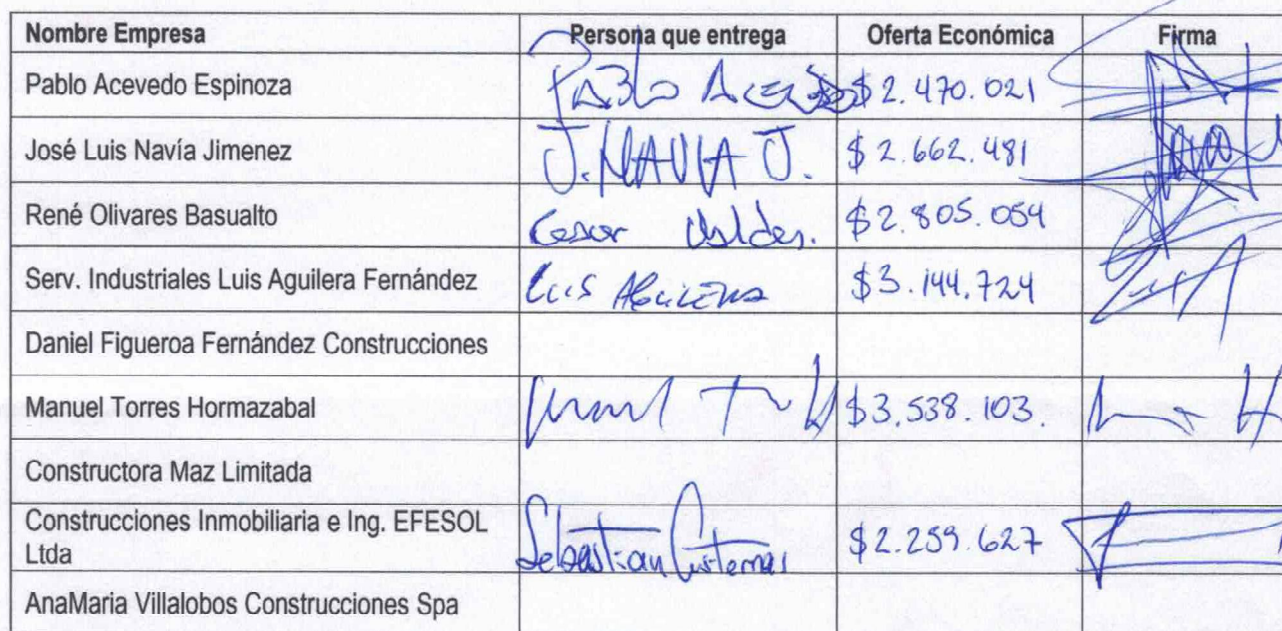 Nombre Empresa Persona que entrega Oferta Económica Firma
Pablo Acevedo Espinoza Pablo $2.470.021
José Luis Navía Jimenez J. NAVIA J. $2.662.481
René Olivares Basualto Cesar Valdes. $2.805.054
Serv. Industriales Luis Aguilera Fernández Luis Aguilera $3.144.724
Daniel Figueroa Fernández Construcciones
Manuel Torres Hormazabal $3.538.103.
Constructora Maz Limitada
Construcciones Inmobiliaria e Ing. EFESOL
Ltda Sebastian Cisternas $2.259.627
AnaMaria Villalobos Construcciones Spa